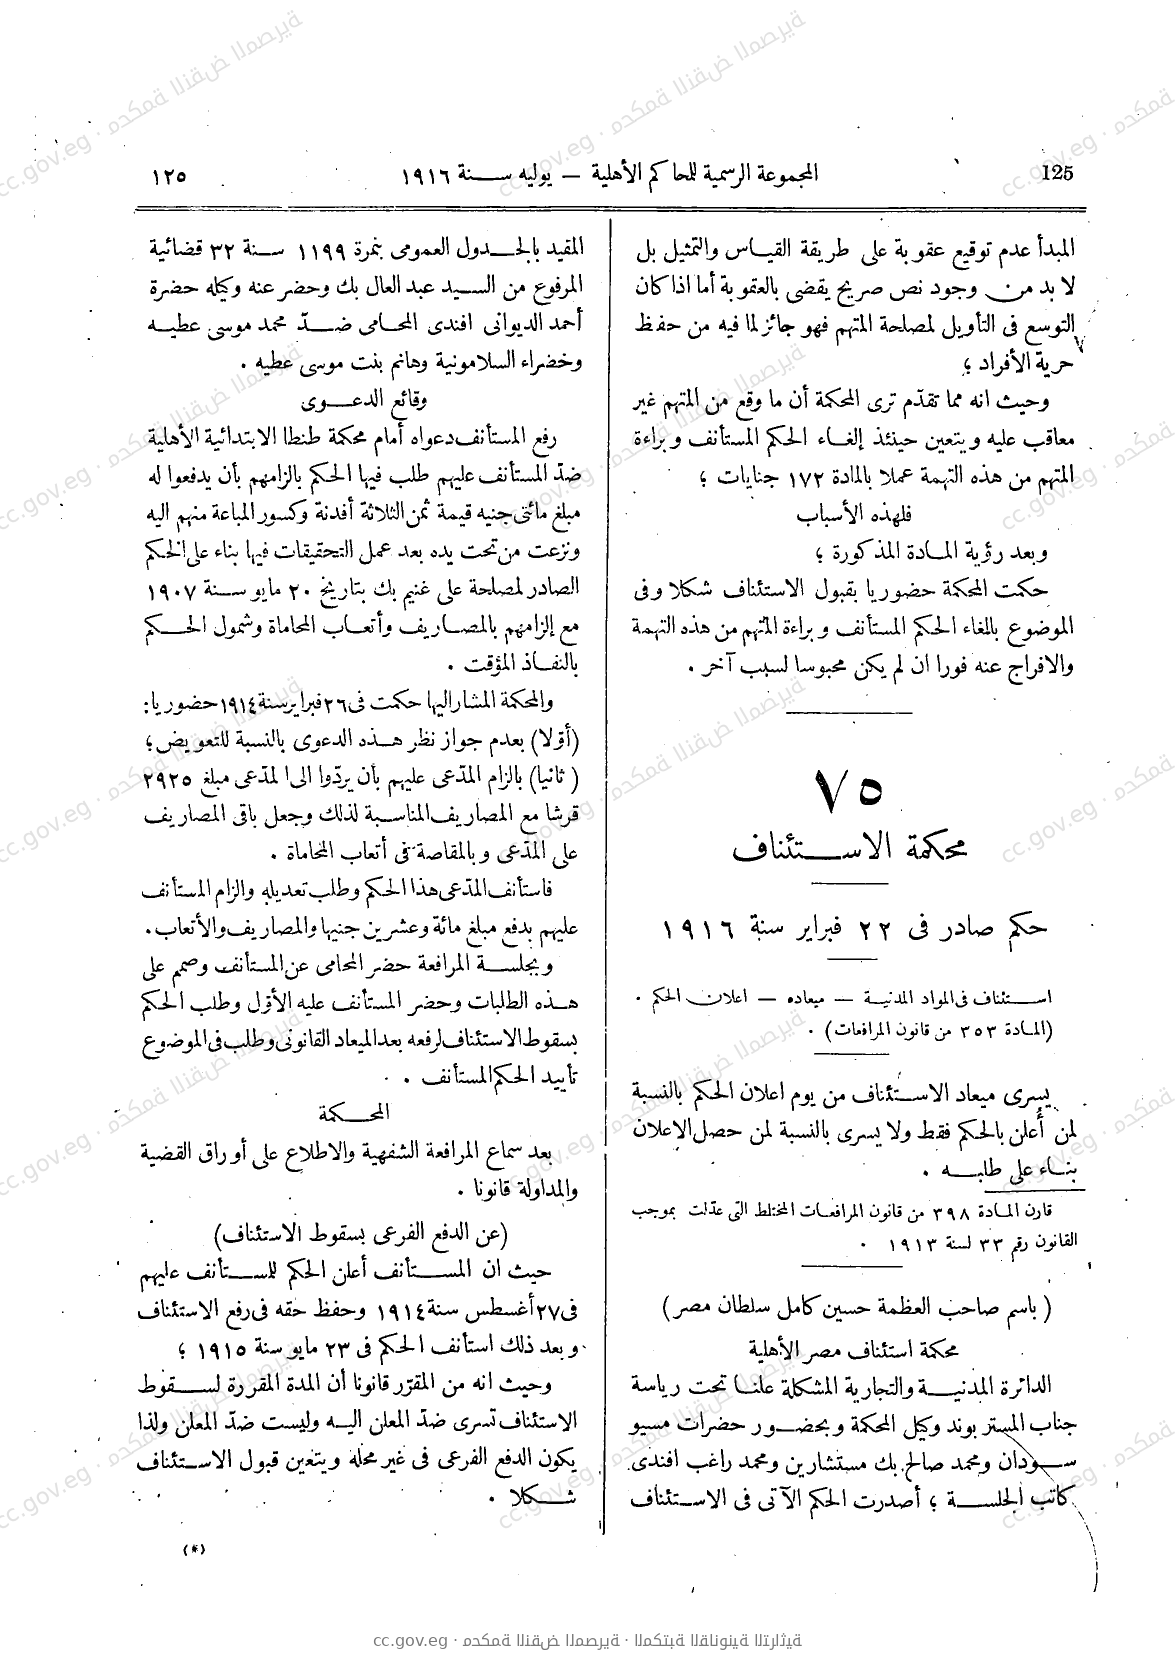 125
المجموعة الرسمية للمحاكم الأهلية — يوليه سنة ١٩١٦
١٢٥
المبدأ عدم توقيع عقوبة على طريقة القياس والتمثيل بل
لا بد من وجود نص صريح يقضى بالعقوبة أما اذا كان
التوسع فى التأويل لمصلحة المتهم فهو جائز لما فيه من حفظ
حرية الأفراد ؛
وحيث انه مما تقدّم ترى المحكمة أن ما وقع من المتهم غير
معاقب عليه ويتعين حينئذ إلغاء الحكم المستأنف وبراءة
المتهم من هذه التهمة عملا بالمادة ١٧٢ جنايات ؛
فلهذه الأسباب
وبعد رؤية المادة المذكورة ؛
حكمت المحكمة حضوريا بقبول الاستئناف شكلا وفى
الموضوع بالغاء الحكم المستأنف وبراءة المتهم من هذه التهمة
والافراج عنه فورا ان لم يكن محبوسا لسبب آخر .
٧٥
محكمة الاستئناف
حكم صادر فى ٢٢ فبراير سنة ١٩١٦
استئناف فى المواد المدنية — ميعاده — اعلان الحكم .
(المادة ٣٥٣ من قانون المرافعات) .
يسرى ميعاد الاستئناف من يوم اعلان الحكم بالنسبة
لمن أُعلن بالحكم فقط ولا يسرى بالنسبة لمن حصل الاعلان
بناء على طلبه .
قارن المادة ٣٩٨ من قانون المرافعات المختلط التى عدّلت بموجب
القانون رقم ٣٣ لسنة ١٩١٣ .
( باسم صاحب العظمة حسين كامل سلطان مصر )
محكمة استئناف مصر الأهلية
الدائرة المدنية والتجارية المشكلة علنا تحت رياسة
جناب المستر بوند وكيل المحكمة وبحضور حضرات مسيو
سودان ومحمد صالح بك مستشارين ومحمد راغب افندى
كاتب الجلسة ؛ أصدرت الحكم الآتى فى الاستئناف
المقيد بالجدول العمومى بنمرة ١١٩٩ سنة ٣٢ قضائية
المرفوع من السيد عبد العال بك وحضر عنه وكيله حضرة
أحمد الديوانى افندى المحامى ضدّ محمد موسى عطيه
وخضراء السلامونية وهانم بنت موسى عطيه .
وقائع الدعوى
رفع المستأنف دعواه أمام محكمة طنطا الابتدائية الأهلية
ضدّ المستأنف عليهم طلب فيها الحكم بالزامهم بأن يدفعوا له
مبلغ مائتى جنيه قيمة ثمن الثلاثة أفدنة وكسور المباعة منهم اليه
ونزعت من تحت يده بعد عمل التحقيقات فيها بناء على الحكم
الصادر لمصلحة على غنيم بك بتاريخ ٢٠ مايو سنة ١٩٠٧
مع إلزامهم بالمصاريف وأتعاب المحاماة وشمول الحكم
بالنفاذ المؤقت .
والمحكمة المشار اليها حكمت فى ٢٦ فبراير سنة ١٩١٤ حضوريا:
(أوّلا) بعدم جواز نظر هذه الدعوى بالنسبة للتعويض ؛
( ثانيا) بالزام المدّعى عليهم بأن يردّوا الى المدّعى مبلغ ٢٩٢٥
قرشا مع المصاريف المناسبة لذلك وجعل باقى المصاريف
على المدّعى وبالمقاصة فى أتعاب المحاماة .
فاستأنف المدّعى هذا الحكم وطلب تعديله والزام المستأنف
عليهم بدفع مبلغ مائة وعشرين جنيها والمصاريف والأتعاب .
وبجلسة المرافعة حضر المحامى عن المستأنف وصمم على
هذه الطلبات وحضر المستأنف عليه الأوّل وطلب الحكم
بسقوط الاستئناف لرفعه بعد الميعاد القانونى وطلب فى الموضوع
تأييد الحكم المستأنف .
المحكمة
بعد سماع المرافعة الشفهية والاطلاع على أوراق القضية
والمداولة قانونا .
(عن الدفع الفرعى بسقوط الاستئناف)
حيث ان المستأنف أعلن الحكم للمستأنف عليهم
فى ٢٧ أغسطس سنة ١٩١٤ وحفظ حقه فى رفع الاستئناف
وبعد ذلك استأنف الحكم فى ٢٣ مايو سنة ١٩١٥ ؛
وحيث انه من المقرّر قانونا أن المدة المقررة لسقوط
الاستئناف تسرى ضدّ المعلن اليه وليست ضدّ المعلن ولذا
يكون الدفع الفرعى فى غير محله ويتعين قبول الاستئناف
شكلا .
(*)
cc.gov.eg · محكمة النقض المصرية · المكتبة القانونية التراثية